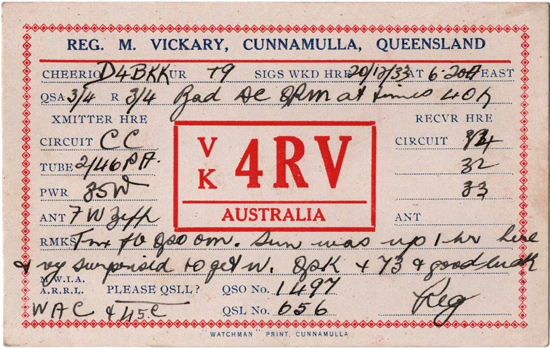 REG. M. VICKARY, CUNNAMULLA, QUEENSLAND
CHEERIO D4BKK UR T9 SIGS WKD HRE 20/12/33 AT 6.20 A EAST
QSA 3/4 R 3/4 Bad AC QRM at times 40 h
XMITTER HRE RECVR HRE
CIRCUIT CC CIRCUIT
TUBE 2/46 P.A. 32
PWR 35W 33
ANT 7 W Zepp ANT
V
K 4RV
AUSTRALIA
RMKS Tnx fb QSO om. Sun was up 1 hr here
& vy surprised to get u. QSK & 73 & good luck
M.W.I.A.
A.R.R.L. PLEASE QSLL? QSO No. 1497
WAC QSL No. 656 Reg
"WATCHMAN" PRINT, CUNNAMULLA